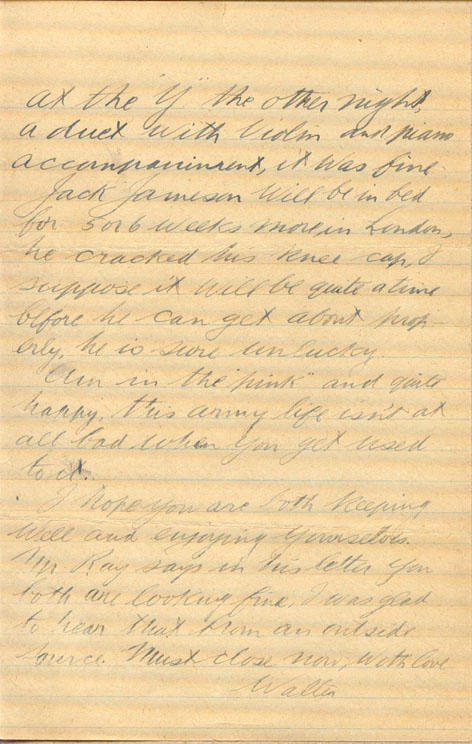 at the "Y" the other night,
a duet with Violin and piano
accompaniment, it was fine.
Jack Jameson will be in bed
for 5 or 6 weeks more, in London,
he cracked his knee cap, I
suppose it will be quite a time
before he can get about prop-
erly, he is sure unlucky.
Am in the "pink" and quite
happy, this army life isn't at
all bad when you get used
to it.
I hope you are both keeping
well and enjoying yourselves.
Mr Ray says in his letter you
both are looking fine, I was glad
to hear that from an outside
source. Must close now, with love
Walter